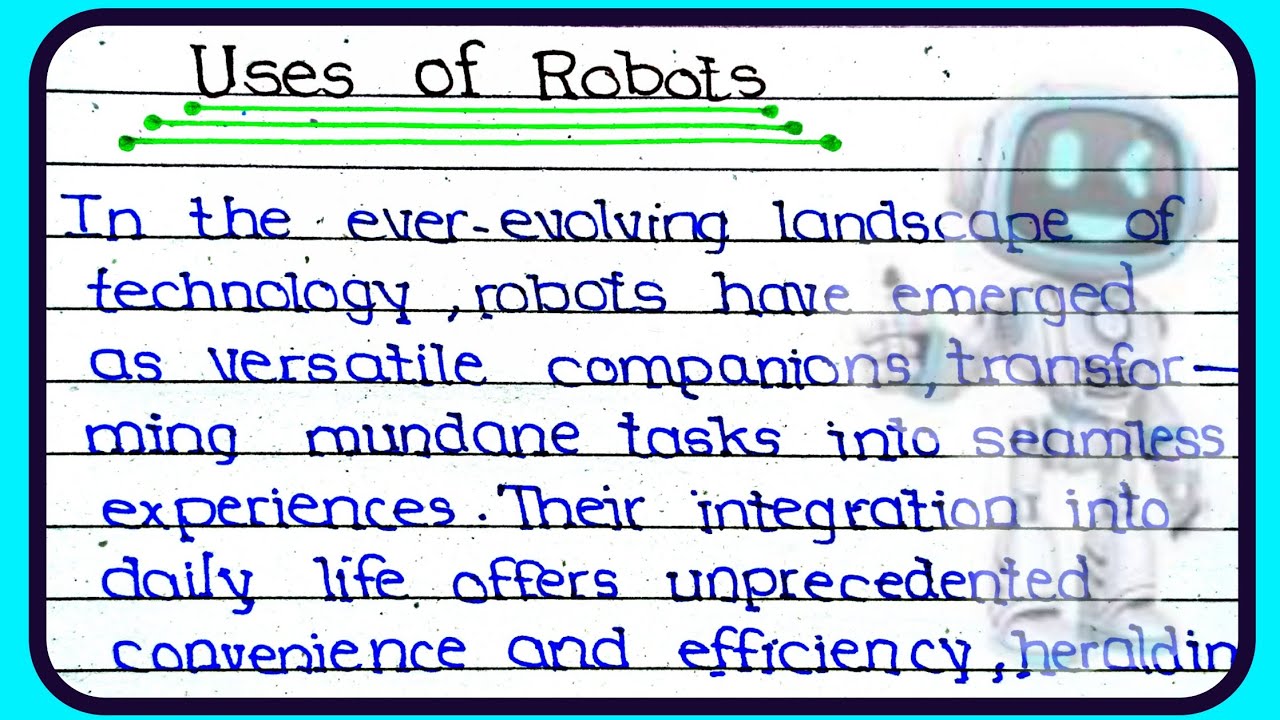 Uses of Robots
In the ever-evolving landscape of
technology, robots have emerged
as versatile companions, transfor-
ming mundane tasks into seamless
experiences. Their integration into
daily life offers unprecedented
convenience and efficiency, heraldin